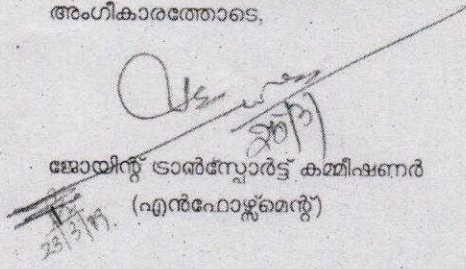 അംഗീകാരത്തോടെ,
ജോയിന്റ് ട്രാൻസ്പോർട്ട് കമ്മീഷണർ
(എൻഫോഴ്സ്മെന്റ്)
23/3/19.